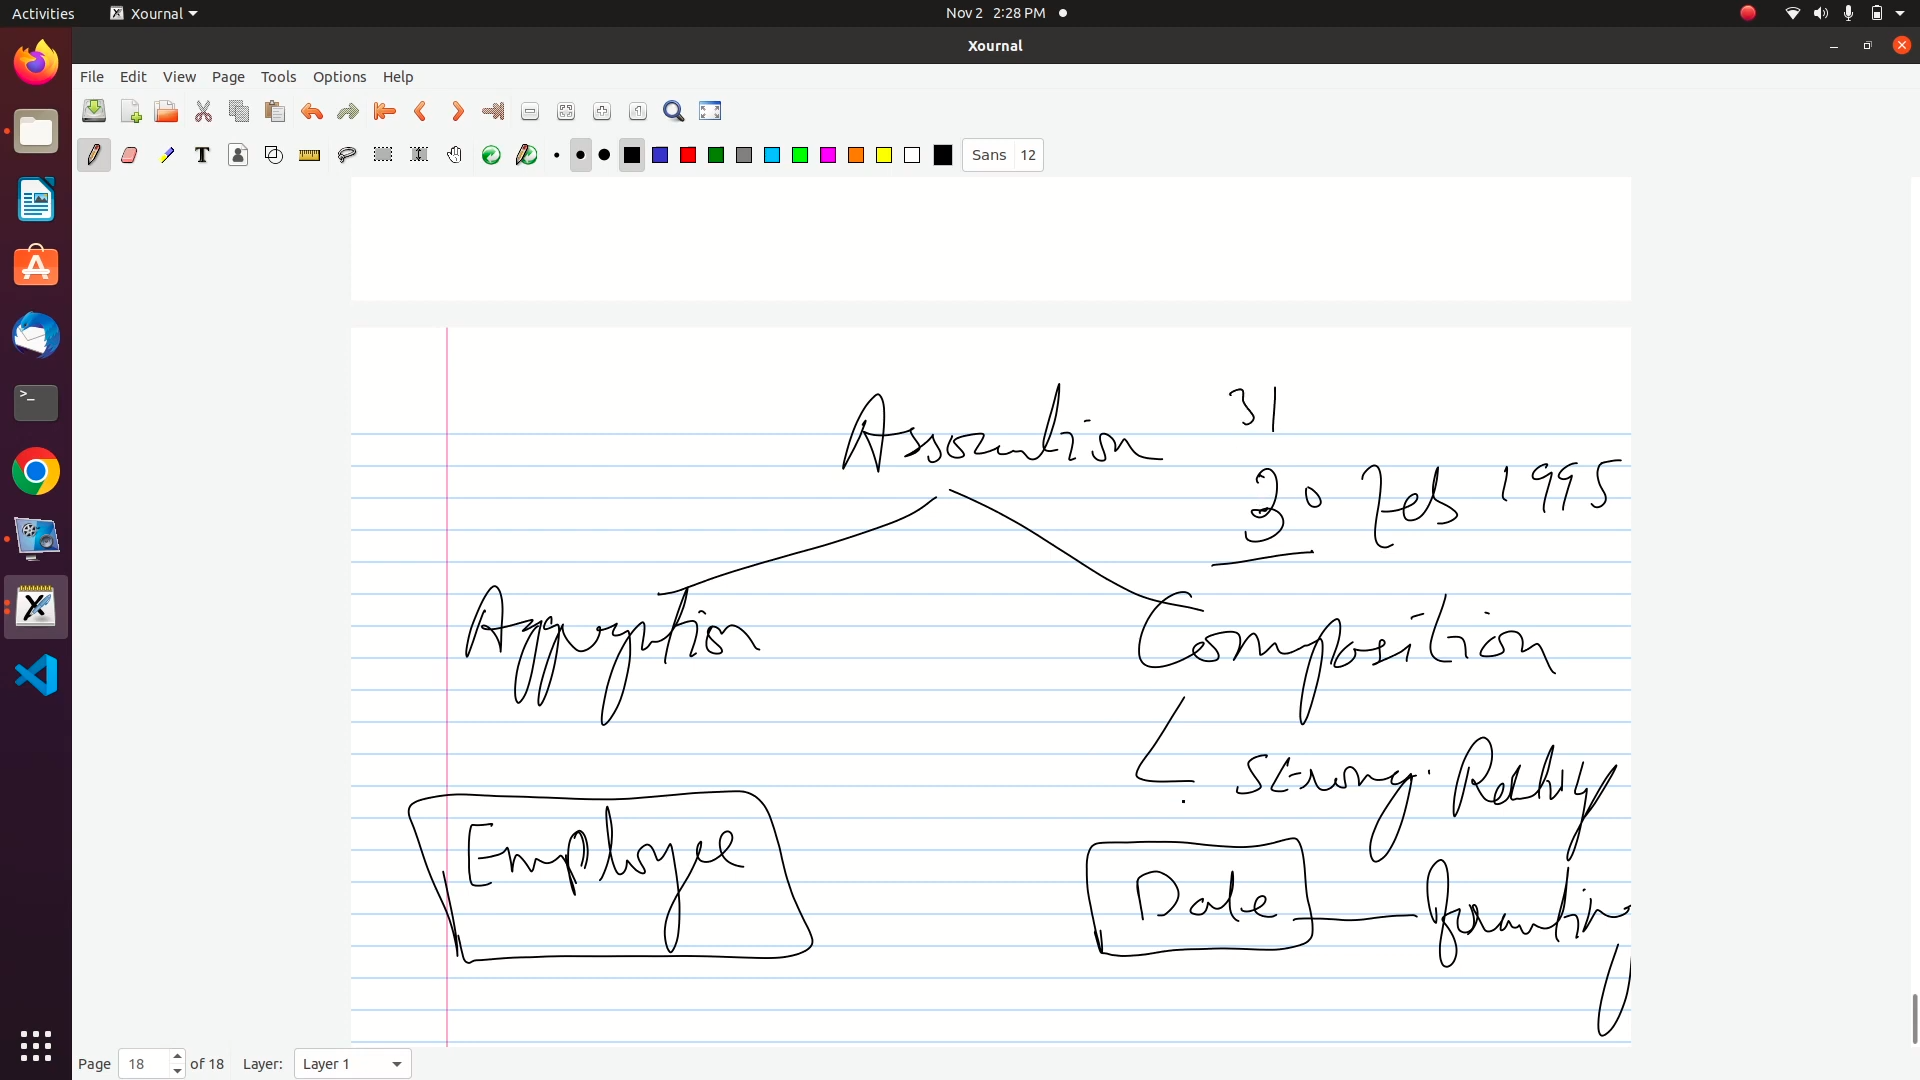 Activities Xournal Nov 2 2:28 PM
Xournal
File Edit View Page Tools Options Help
T Sans 12
Association 31
30 Feb 1995
Aggregation Composition
Strong.
Employee Date
Page 18 of 18 Layer: Layer 1